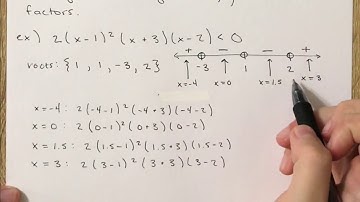 factors.
ex) 2(x-1)²(x+3)(x-2) < 0
roots: {1, 1, -3, 2}
+ − − +
-3 1 2
x=-4 x=0 x=1.5 x=3
x=-4: 2(-4-1)²(-4+3)(-4-2)
x=0: 2(0-1)²(0+3)(0-2)
x=1.5: 2(1.5-1)²(1.5+3)(1.5-2)
x=3: 2(3-1)²(3+3)(3-2)